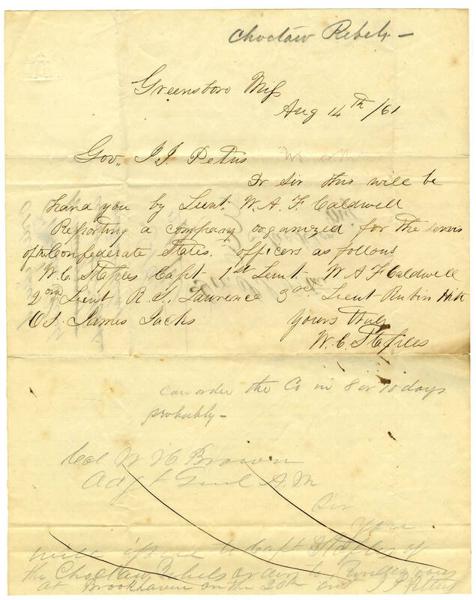 Choctaw Rebels —
Greensboro Miss
Aug 14th /61
Gov. J J Pettus
Dr Sir this will be
hand you by Lieut. W. A. F. Caldwell
Reporting a company organized for the servis
of the Confederate States. officers as follows
W. C. Staples Capt 1st Lieut W A F Caldwell
2nd Lieut R. S. Lawrence 3rd Lieut Rubin
O S. James Jacks Yours Truly
W. C. Staples
can order the Co in 8 or 10 days
probably —
Col W H Brown
Adjt Genl A. M
Sir
You
will Capt Staples of
the Choctaw Rebels orders to rendezvous
at Brookhaven on the 20th J J Pettus